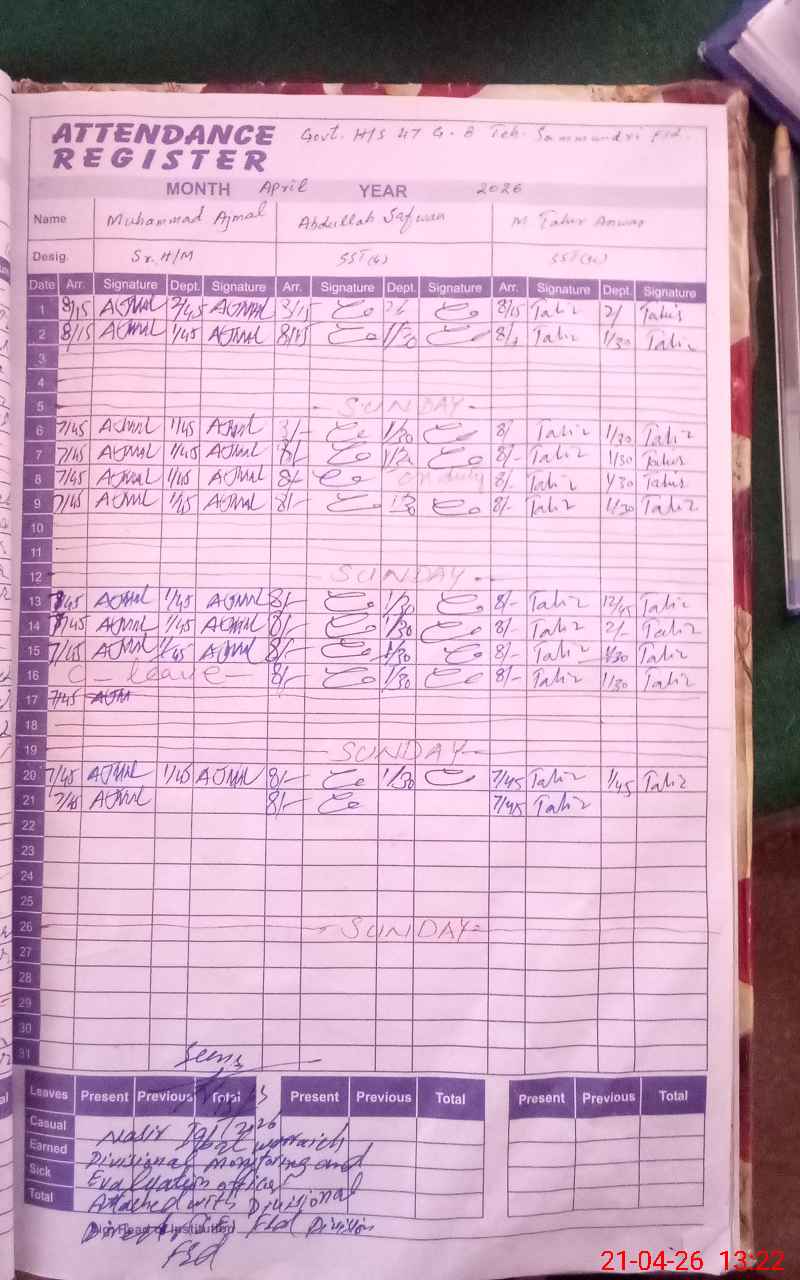 ATTENDANCE REGISTER
Govt. H/S 47 G.B Teh. Sammundri Fsd.
MONTH April YEAR 2026
Name Muhammad Ajmal Abdullah Safwan M. Tahir Anwar
Desig. Sr. H/M SST
Date Arr. Signature Dept. Signature Arr. Signature Dept. Signature Arr. Signature Dept. Signature
1 8/15 AJMAL 2/45 AJMAL 8/15 8/15 Tahir 2/ Tahir
2 8/15 AJMAL 1/45 AJMAL 8/15 1/30 Tahir 1/30 Tahir
3
4
5 SUNDAY
6 7/45 AJMAL 1/45 AJMAL 8/- 1/30 8/ Tahir 1/30 Tahir
7 7/45 AJMAL 1/45 AJMAL 8/- 8/- Tahir 1/30 Tahir
8 7/45 AJMAL 1/45 AJMAL 8/- on duty 8/- Tahir 1/30 Tahir
9 7/45 AJMAL 1/45 AJMAL 8/- 1/30 8/- Tahir 1/30 Tahir
10
11
12 SUNDAY
13 7/45 AJMAL 1/45 AJMAL 8/- 1/30 8/- Tahir 12/45 Tahir
14 7/45 AJMAL 1/45 AJMAL 8/- 1/30 8/- Tahir 2/- Tahir
15 7/45 AJMAL 1/45 AJMAL 8/- 1/30 8/- Tahir 1/30 Tahir
16 C - leave - 8/- 1/30 8/- Tahir 1/30 Tahir
17 7/45 AJM
18
19 SUNDAY
20 7/45 AJMAL 1/45 AJMAL 8/- 1/30 7/45 Tahir 1/45 Tahir
21 7/45 AJMAL 8/- 7/45 Tahir
22
23
24
25
26 SUNDAY
27
28
29
30
31
Seen
Leaves Present Previous Total Present Previous Total Present Previous Total
Casual
Earned
Sick
Total
Nasir Iqbal Warraich
Divisional Monitoring and
Evaluation officer
Attached with Divisional
Fsd Division
Fsd
21-04-26 13:22